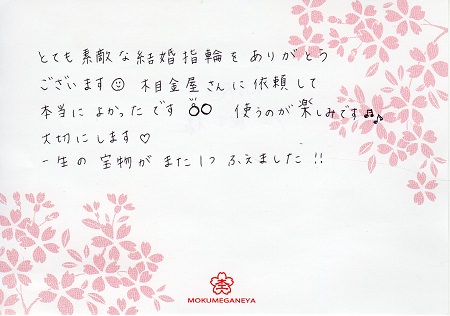 とても素敵な結婚指輪をありがとう
ございます☺ 杢目金屋さんに依頼して
本当によかったです 💍○ 使うのが楽しみです♫♪
大切にします♡
一生の宝物がまた1つふえました!!
MOKUMEGANEYA